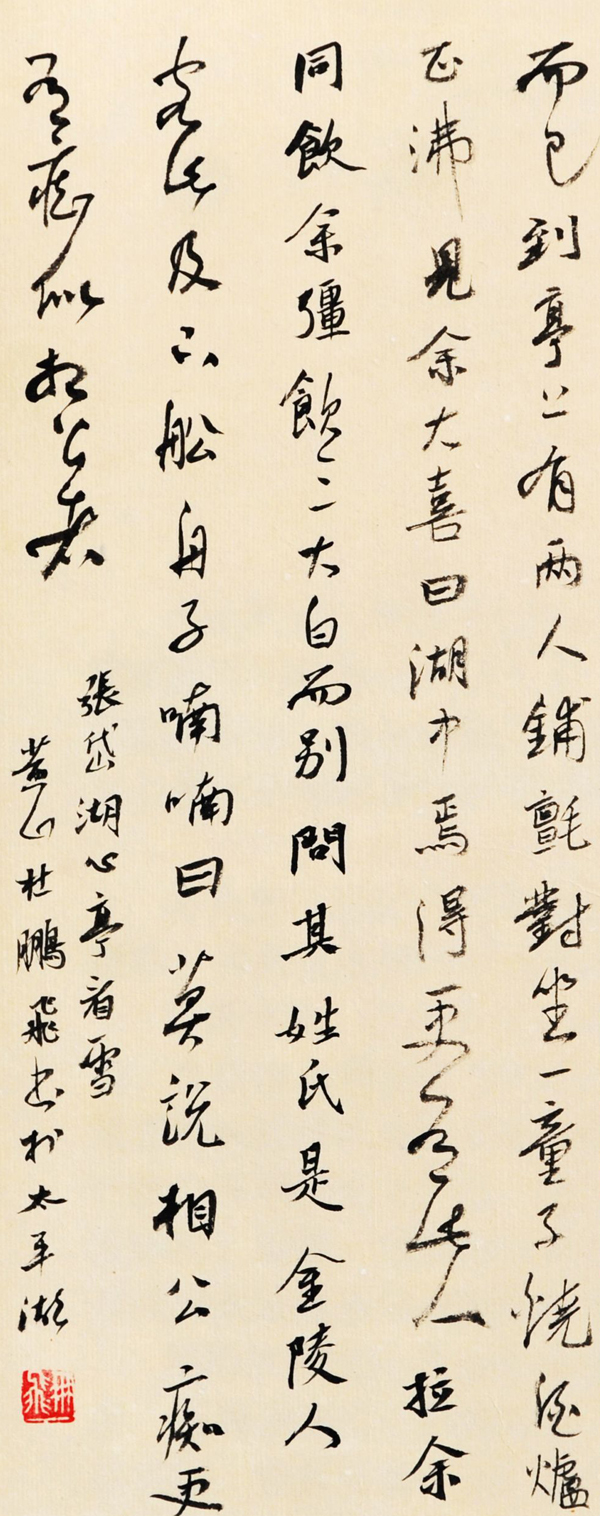 而已到亭上有兩人鋪氈對坐一童子燒酒爐
正沸見余大喜曰湖中焉得更有此人拉余
同飲余彊飲三大白而别問其姓氏是金陵人
客此及下船舟子喃喃曰莫説相公痴更
有癡似相公者
張岱湖心亭看雪
黄山杜鵬飛書於太平湖